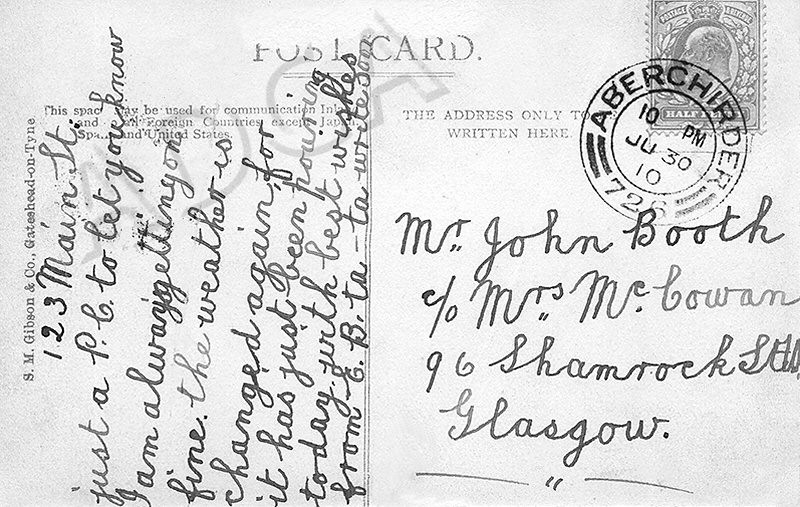 POST CARD.
This space may be used for communication Inland
and Foreign Countries except Japan
Spain and United States.
THE ADDRESS ONLY TO
WRITTEN HERE.
S. M. Gibson & Co., Gateshead-on-Tyne
HALF
ABERCHIRDER
10 PM
JU 30
10
726
123 Main St.
just a P.C. to let you know
I am always getting on
fine. the weather is
changed again, for
it has just been pouring
today. with best wishes
from E. B. ta-ta write soon
Mr. John Booth
c/o Mrs Mc. Cowan
96 Shamrock St
Glasgow.